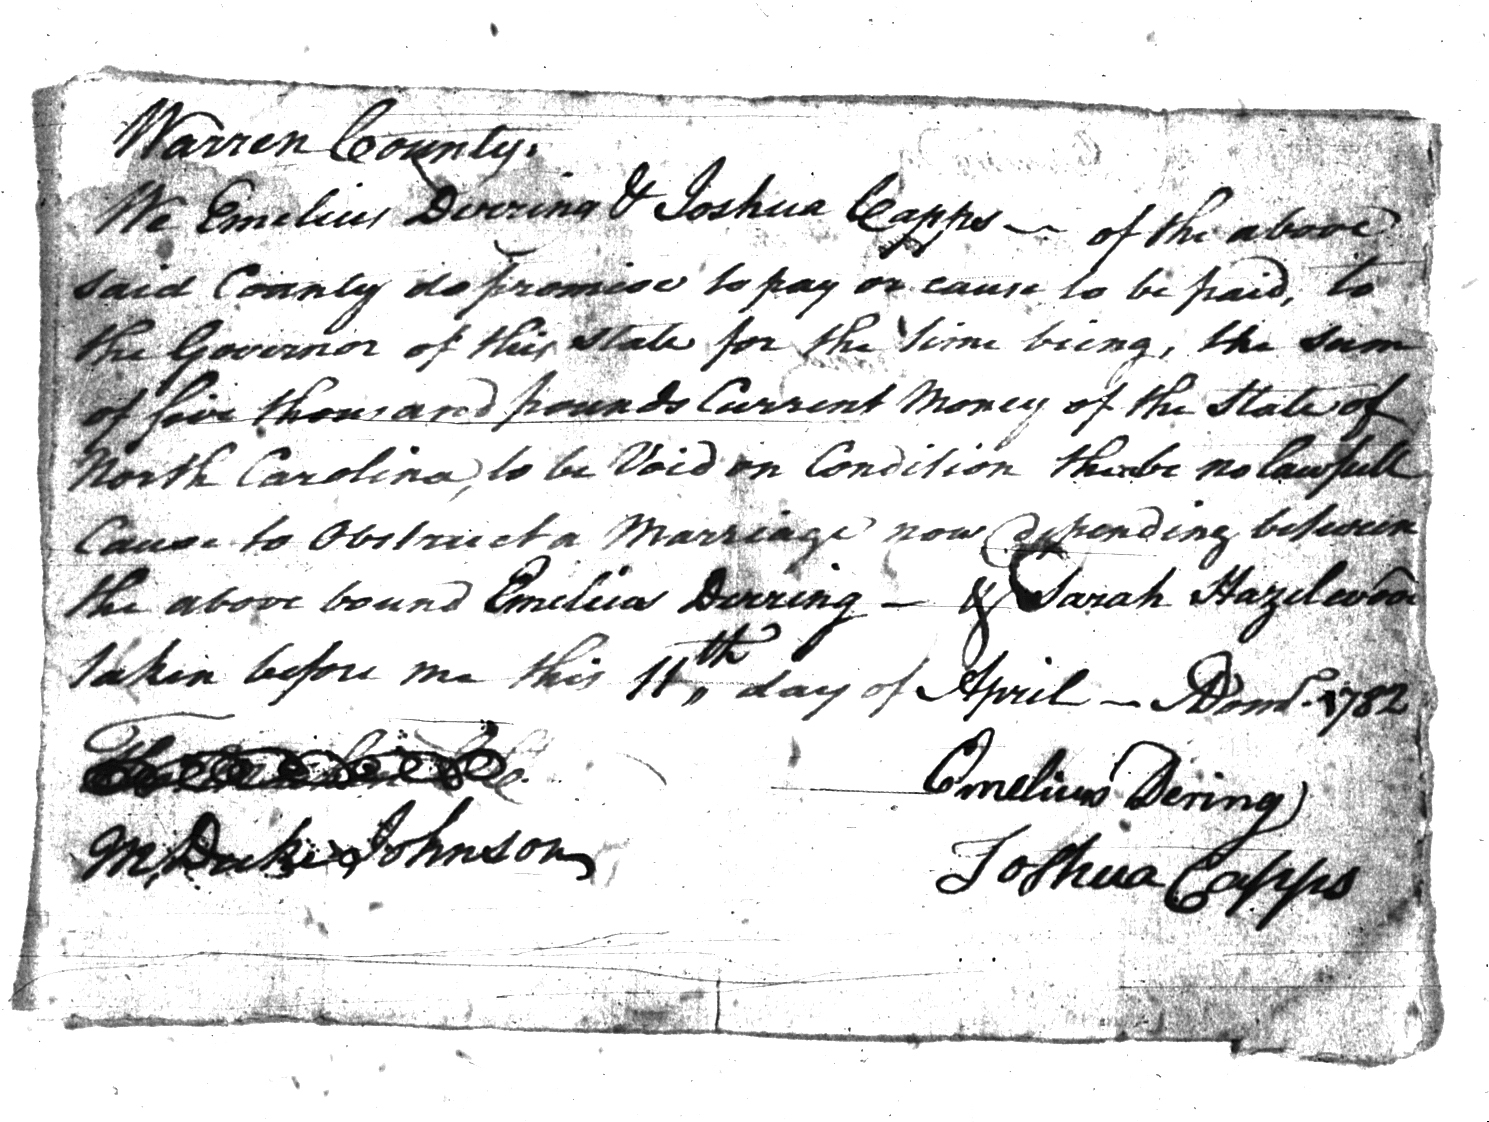 Warren County.
We Emelius Derring & Joshua Capps — of the above
said County do promise to pay or cause to be paid, to
the Governor of this State for the time being, the sum
of five thousand pounds Current Money of the State of
North Carolina, to be Void on Condition there be no lawfull
Cause to Obstruct a Marriage now depending between
the above bound Emelius Derring — & Sarah Hazelwood
taken before me this 11th day of April — ADom. 1782
Emelius Dering
M, Duke Johnson
Joshua Capps